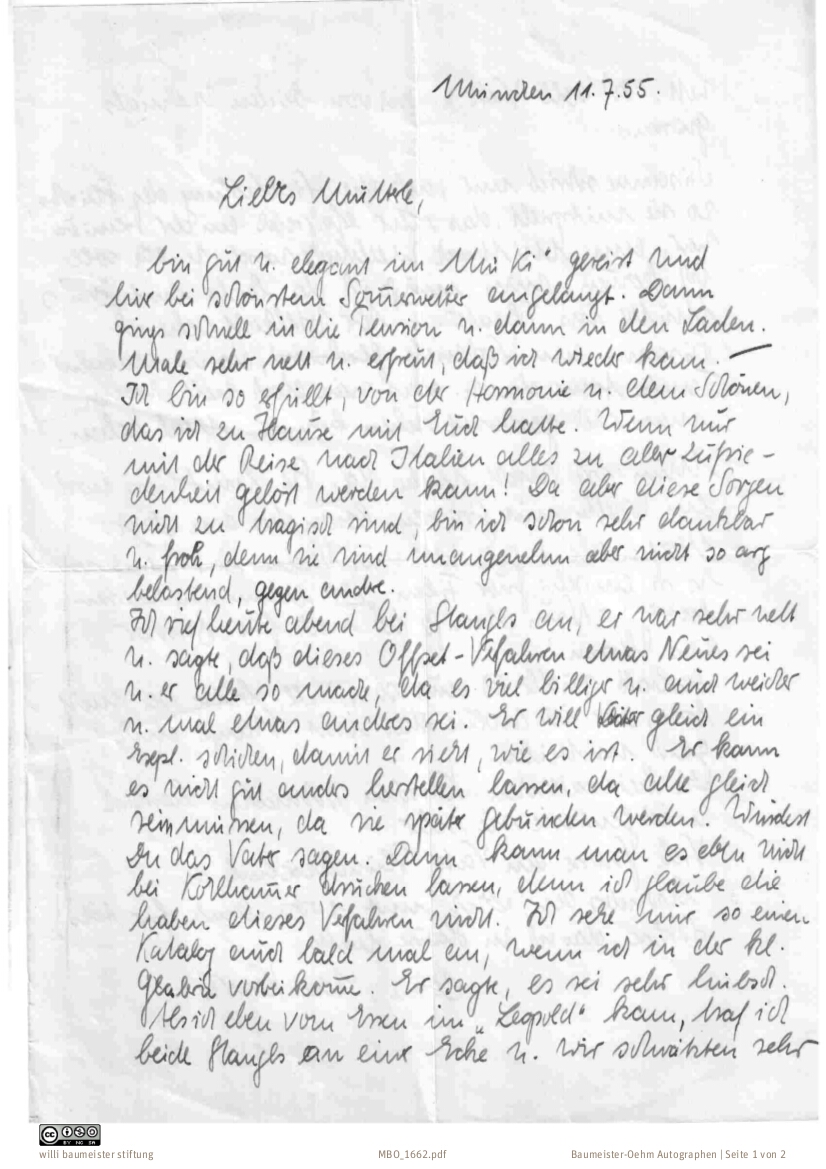 München 11.7.55.
Liebes Mutterle,
bin gut u. elegant im "Mü Ki" gereist und
hier bei schönstem Sommerwetter angelangt. Dann
gings schnell in die Pension u. dann in den Laden.
Male sehr nett u. erfreut, daß ich wieder kam. —
Ich bin so erfüllt, von der Harmonie u. dem Schönen,
das ich zu Hause mit Euch hatte. Wenn nur
mit der Reise nach Italien alles zu aller Zufrie-
denheit gelöst werden kann! Da aber diese Sorgen
nicht zu tragisch sind, bin ich schon sehr dankbar
u. froh, denn sie sind unangenehm aber nicht so arg
belastend, gegen andre.
Ich rief heute abend bei Stangls an, er war sehr nett
u. sagte, daß dieses Offset-Verfahren etwas Neues sei
u. er alle so mache, da es viel billiger u. auch weicher
u. mal etwas anderes sei. Er will Vater gleich ein
Expl. schicken, damit er sieht, wie es ist. Er kann
es nicht gut anders herstellen lassen, da alle gleich
sein müssen, da sie später gebunden werden. Würdest
Du das Vater sagen. Dann kann man es eben nicht
bei Kohlhammer drucken lassen, denn ich glaube die
haben dieses Verfahren nicht. Ich sehe mir so einen
Katalog auch bald mal an, wenn ich in der kl.
Galerie vorbeikomme. Er sagte, es sei sehr hübsch.
Als ich eben vom Essen im "Leopold" kam, traf ich
beide Stangls an einer Ecke u. wir schwätzten sehr
willi baumeister stiftung
MBO_1662.pdf
Baumeister-Oehm Autographen | Seite 1 von 2